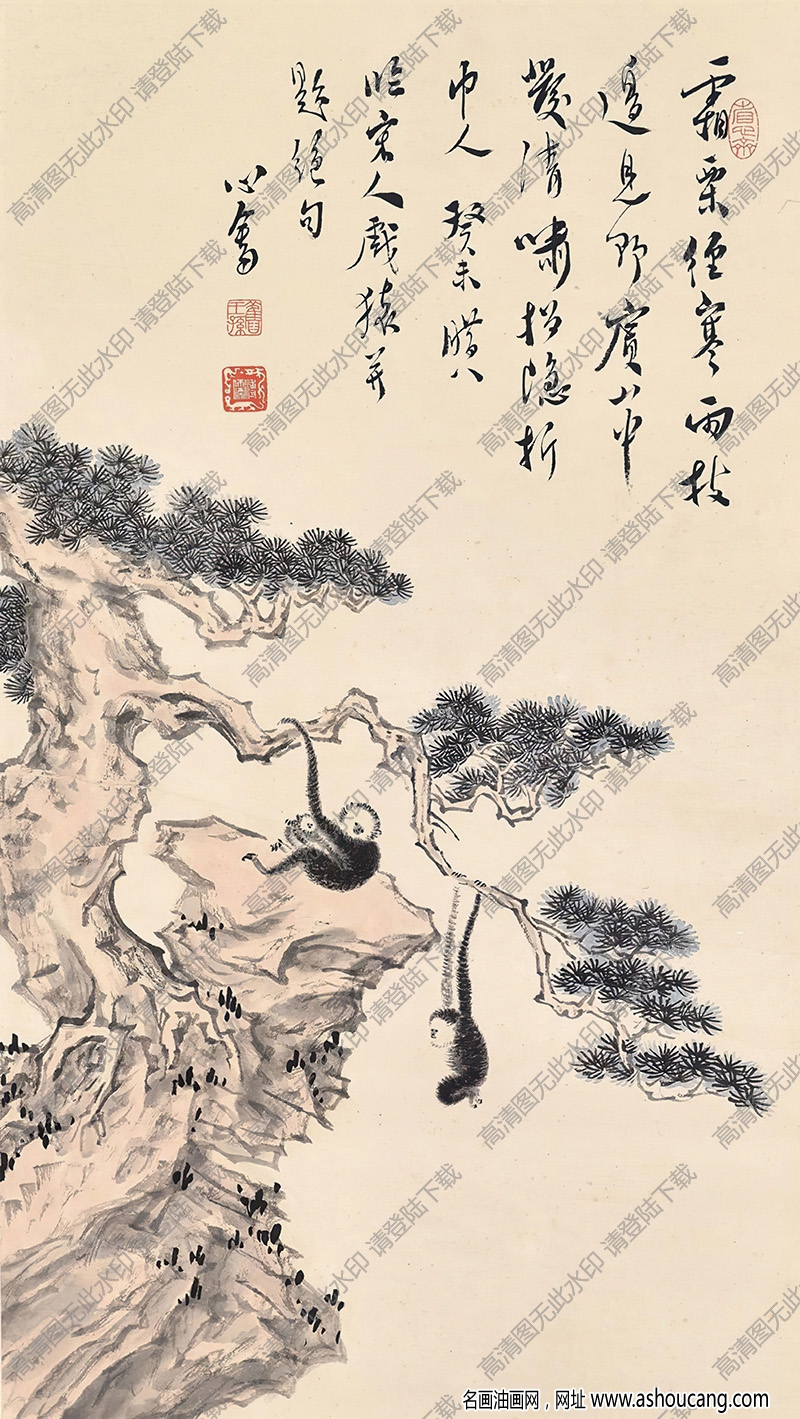 霜栗經寒雨枝
邊見野賓山中
發清嘯招隱折
巾人 癸未臘八
臨宋人戲猿并
題絕句
心畬
舊王孫
高清图无此水印 请登陆下载
名画油画网，网址 www.ashoucang.com